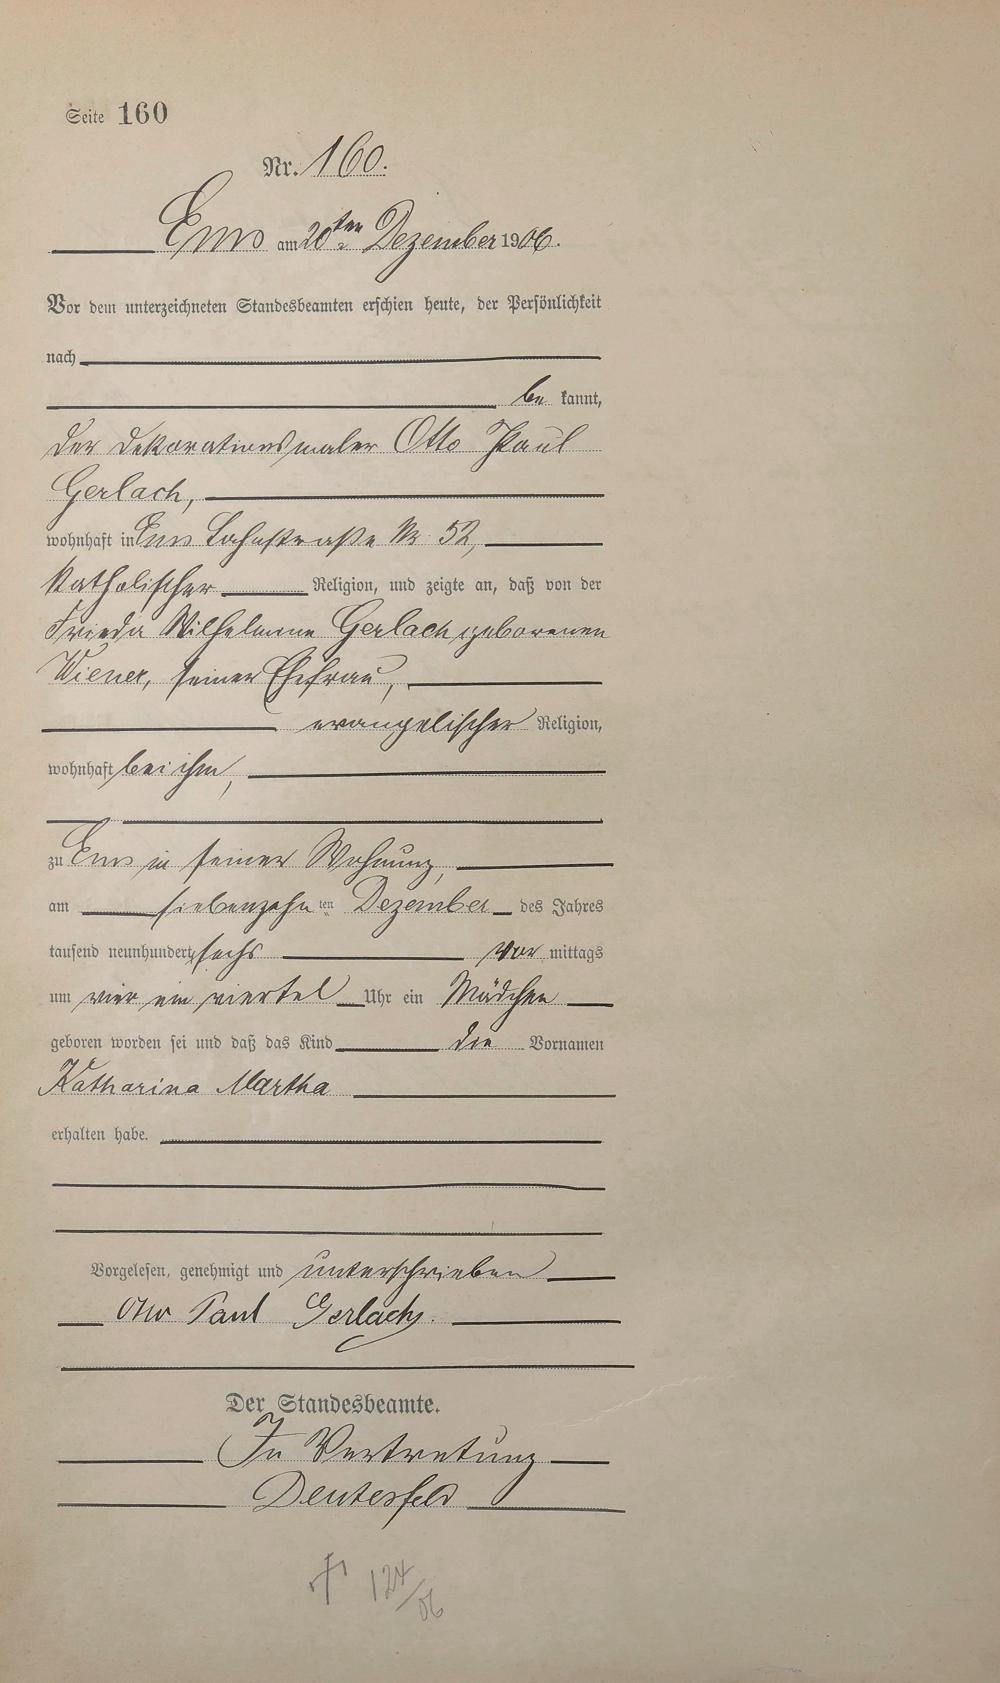 Seite 160
Nr. 160.
Ems am 20ten Dezember 1906.
Vor dem unterzeichneten Standesbeamten erschien heute, der Persönlichkeit
nach
be kannt,
der Dekorationsmaler Otto Paul
Gerlach,
wohnhaft in Ems Lahnstraße Nr 52,
katholischer Religion, und zeigte an, daß von der
Frieda Wilhelmine Gerlach geborenen
Wiener, seiner Ehefrau,
evangelischer Religion,
wohnhaft bei ihm,
zu Ems in seiner Wohnung,
am siebenzehn ten Dezember des Jahres
tausend neunhundert sechs vor mittags
um vier ein viertel Uhr ein Mädchen
geboren worden sei und daß das Kind die Vornamen
Katharina Martha
erhalten habe.
Vorgelesen, genehmigt und unterschrieben
Otto Paul Gerlach.
Der Standesbeamte.
In Vertretung
Deutesfeld
† 124/06